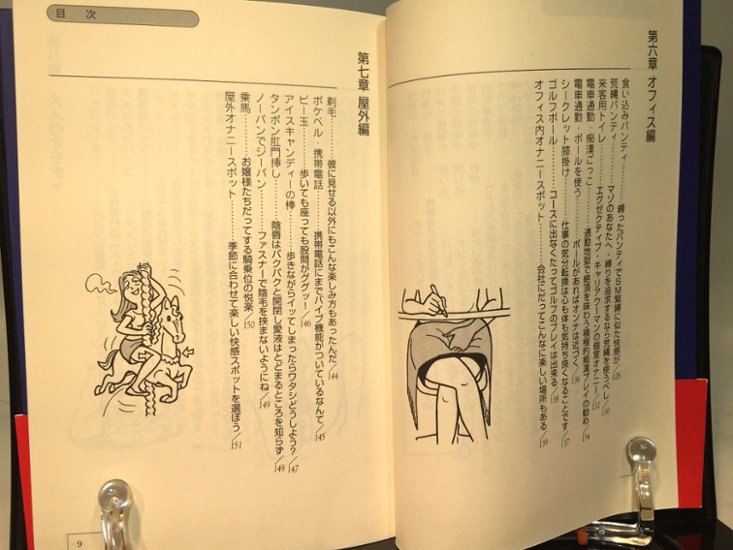 第六章 オフィス編
食い込みパンティ……縛ったパンティでSM緊縛に似た快感が/128
荒縄パンティ……マゾのあなたへ・縛りを追求するなら荒縄を使うべし/130
来客用トイレ……エグゼクティブ・キャリアウーマンの個室オナニー/132
電車通勤・痴漢ごっこ……通勤地獄で絶頂を味わう積極的痴漢プレイの勧め/134
電車通勤・ポールを使う……ポールがあればオンナは近づく/136
シークレット膝掛け……仕事の気分転換は心も体も気持ち良くなることです/137
ゴルフボール……コースに出なくたってゴルフのプレイは出来る/138
オフィス内オナニースポット……会社にだってこんなに楽しい場所もある/139
目 次
第七章 屋外編
剃毛……彼に見せる以外にもこんな楽しみ方もあったんだ/144
ポケベル 携帯電話……携帯電話にまでバイブ機能がついているなんて/145
ビー玉……歩いても座っても股間がググッー/146
アイスキャンディーの棒……歩きながらイッてしまったらワタシどうしよう?/147
タンポン肛門挿し……陰唇はパクパクと開閉し愛液はとどまるところを知らず/148
ノーパンでジーパン……ファスナーで陰毛を挟まないようにね/149
乗馬……お嬢様たちだってする騎乗位の悦楽/150
屋外オナニースポット……季節に合わせて楽しい快感スポットを選ぼう/151
9